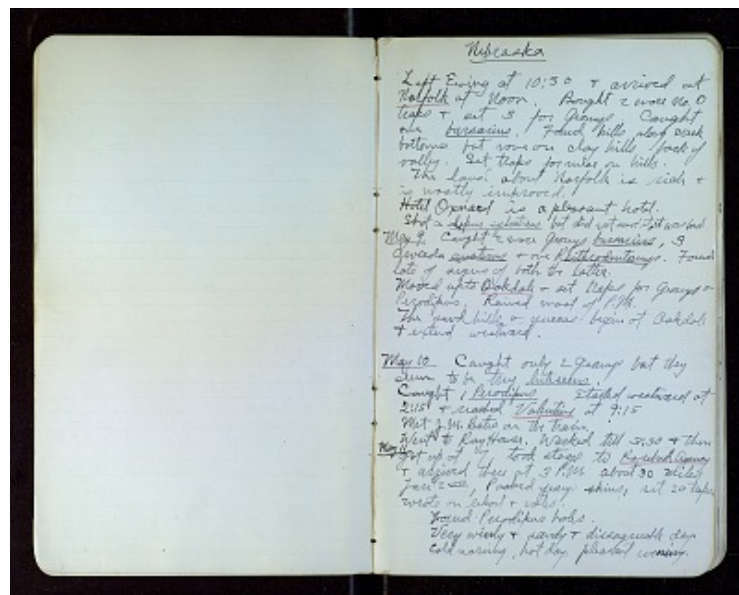 Nebraska
Left Ewing at 10:30 + arrived at
Norfolk at Noon. Bought 2 more No. 0
traps + set 3 for Geomys. Caught
one bursarius. Found hills along creek
bottoms but none on clay hills back of
valley. Set traps for mice on hills.
The land about Norfolk is rich +
is mostly improved.
Hotel Oxnard is a pleasant hotel.
Shot a but did not
May 9. Caught 2 more Geomys bursarius, 3
+ one Reithrodontomys. Found
lots of signs of both the latter.
Moved up to Oakdale + set traps for Geomys +
Perodipus. Rained most of P.M.
The sand hills + yuccas begin at Oakdale
+ extend westward.
May 10 Caught only 2 Geomys but they
seem to be they lutescens.
Caught 1 Perodipus Started westward at
2:15 + reached Valentine at 9:15
Met J.M. Bates on the train.
Went to Ray House. Worked till 2:30 + then
May 11 got up at 7, took stage to Rosebud Agency
+ arrived there at 3 P.M. about 30 miles
Fare skins, set 20 traps,
wrote on +
Found Perodipus holes.
Very windy + sandy + disagreeable day.
Cold morning, hot day, pleasant evening.